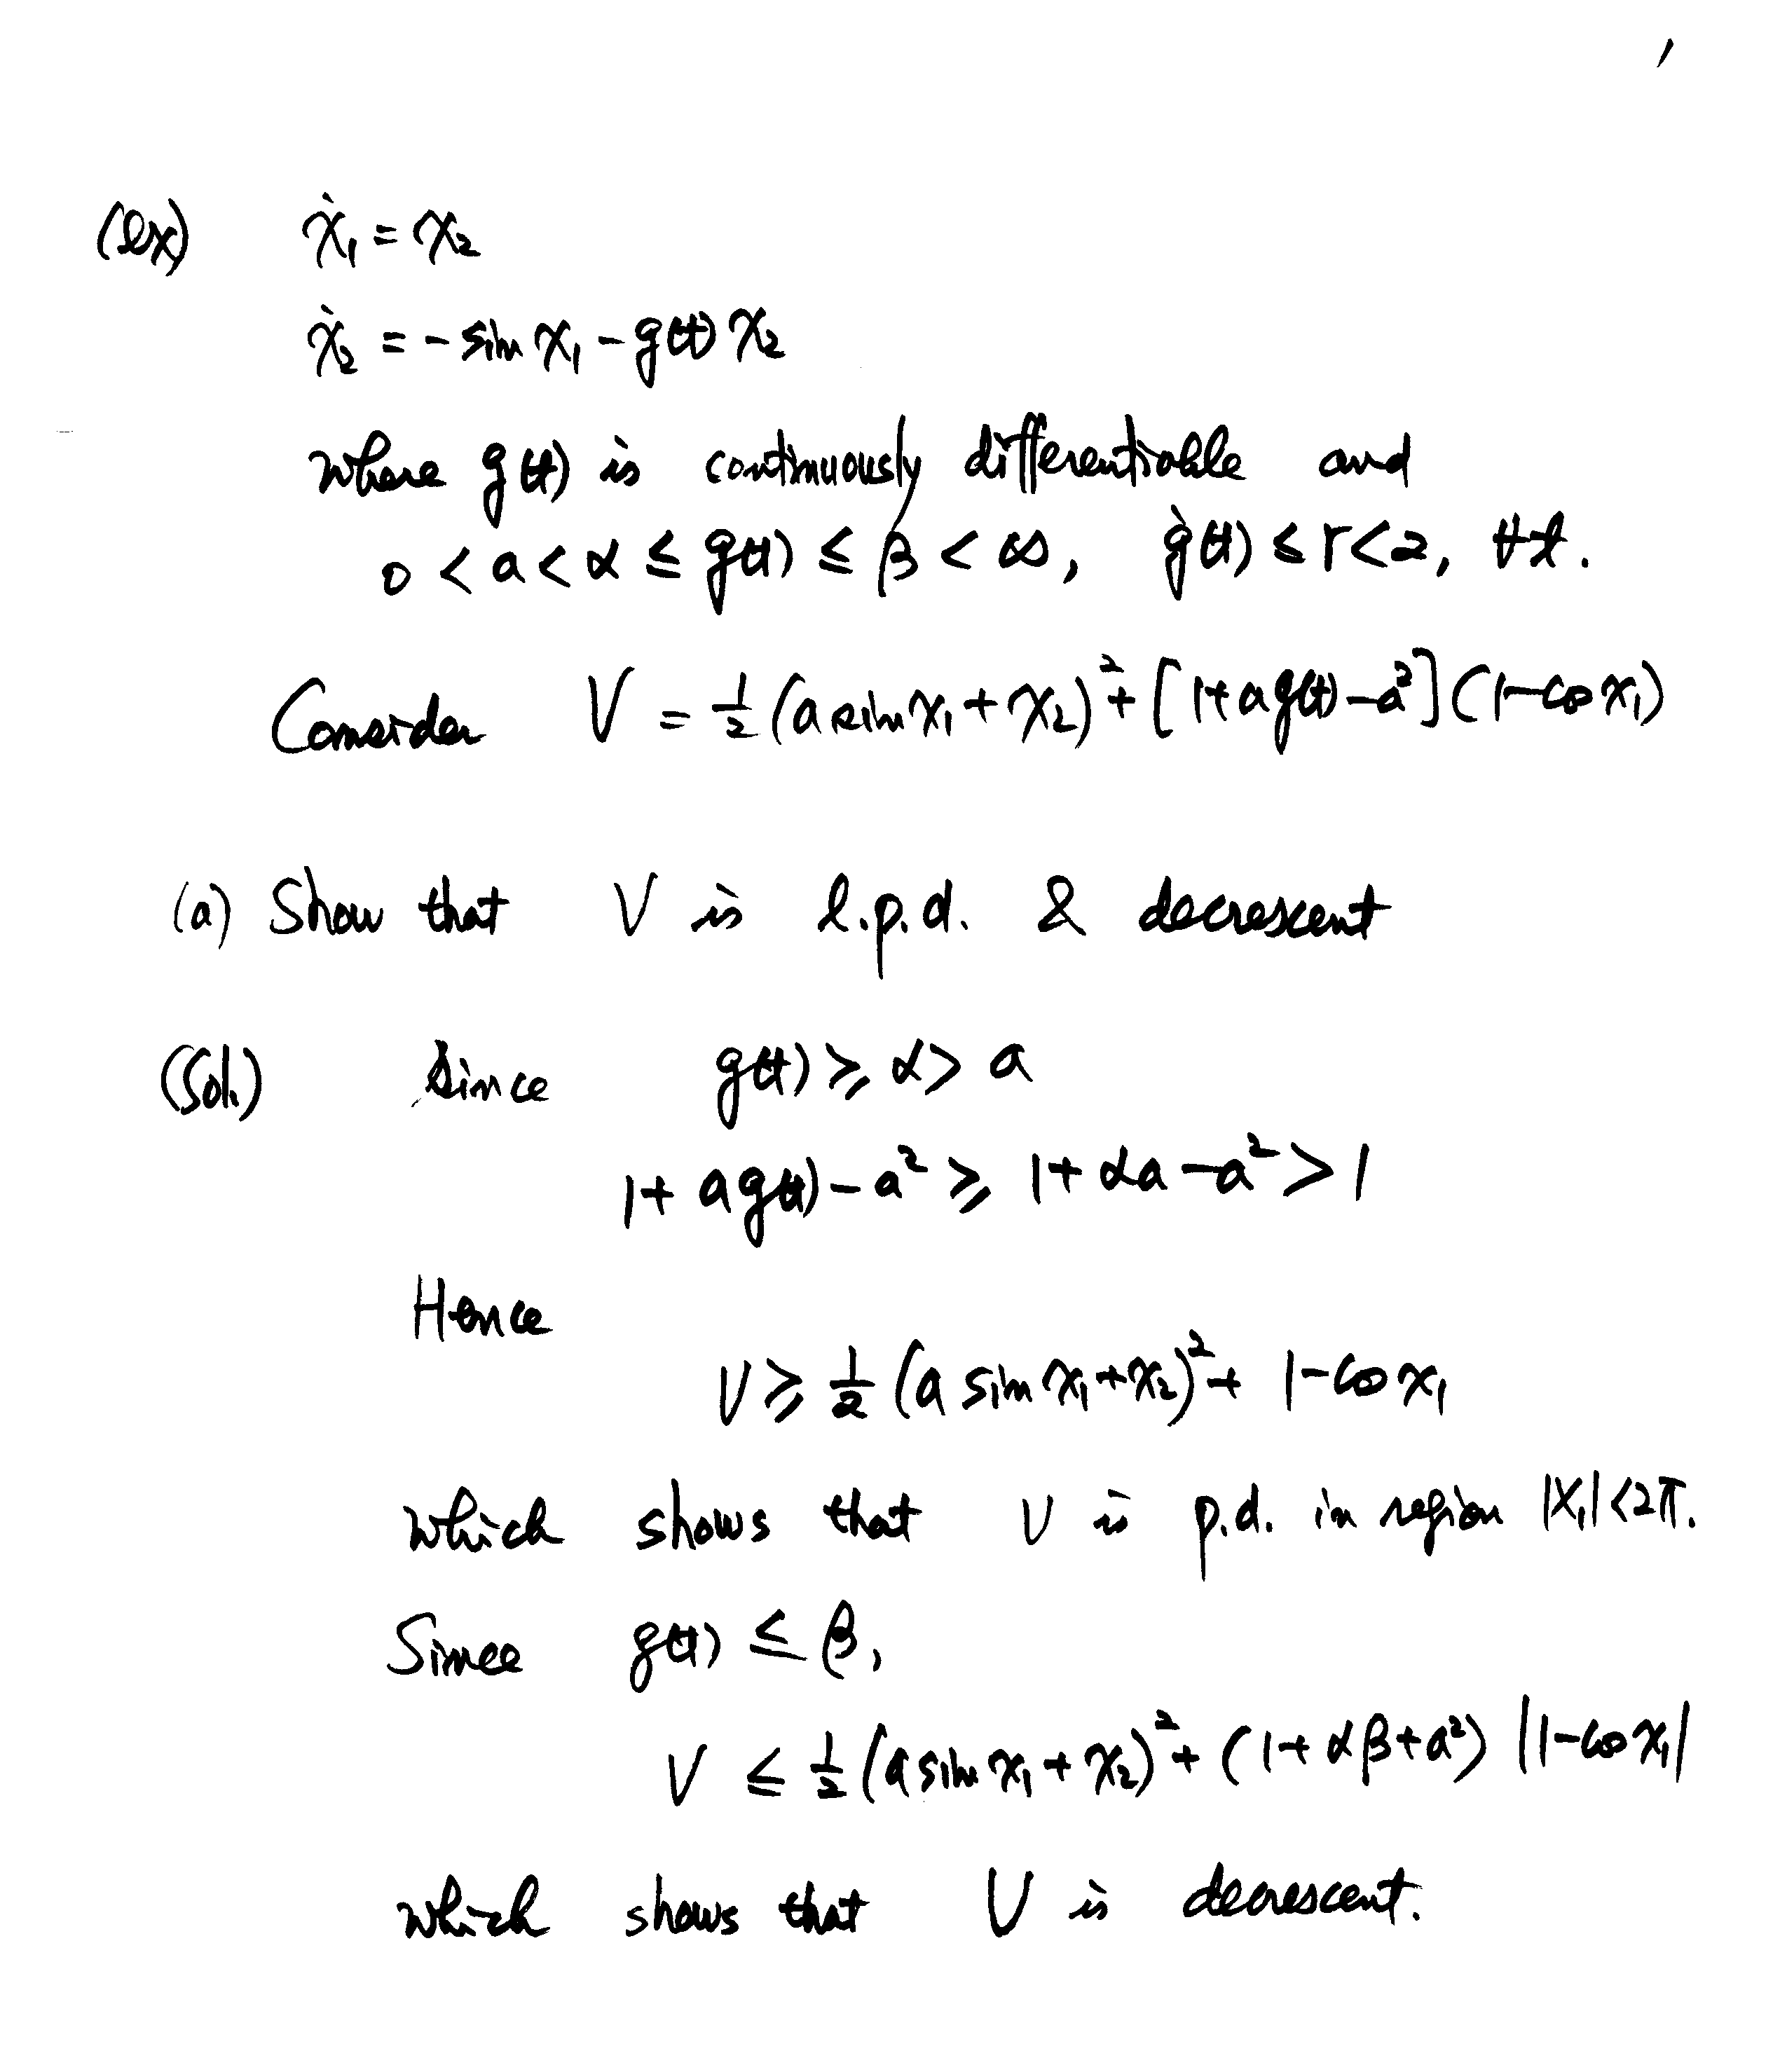 (ex) ẋ₁ = x₂
ẋ₂ = - sin x₁ - g(t) x₂
where g(t) is continuously differentiable and
0 < a < α ≤ g(t) ≤ β < ∞, ġ(t) ≤ r < 2, ∀t.
Consider V = ½ (a sin x₁ + x₂)² + [1 + a g(t) - a²] (1 - cos x₁)
(a) Show that V is l.p.d. & decrescent
(Sol.) Since g(t) ≥ α > a
1 + a g(t) - a² ≥ 1 + αa - a² > 1
Hence
V ≥ ½ (a sin x₁ + x₂)² + 1 - cos x₁
which shows that V is p.d. in region |x₁| < 2π.
Since g(t) ≤ β,
V ≤ ½ (a sin x₁ + x₂)² + (1 + αβ + a²) |1 - cos x₁|
which shows that V is decrescent.